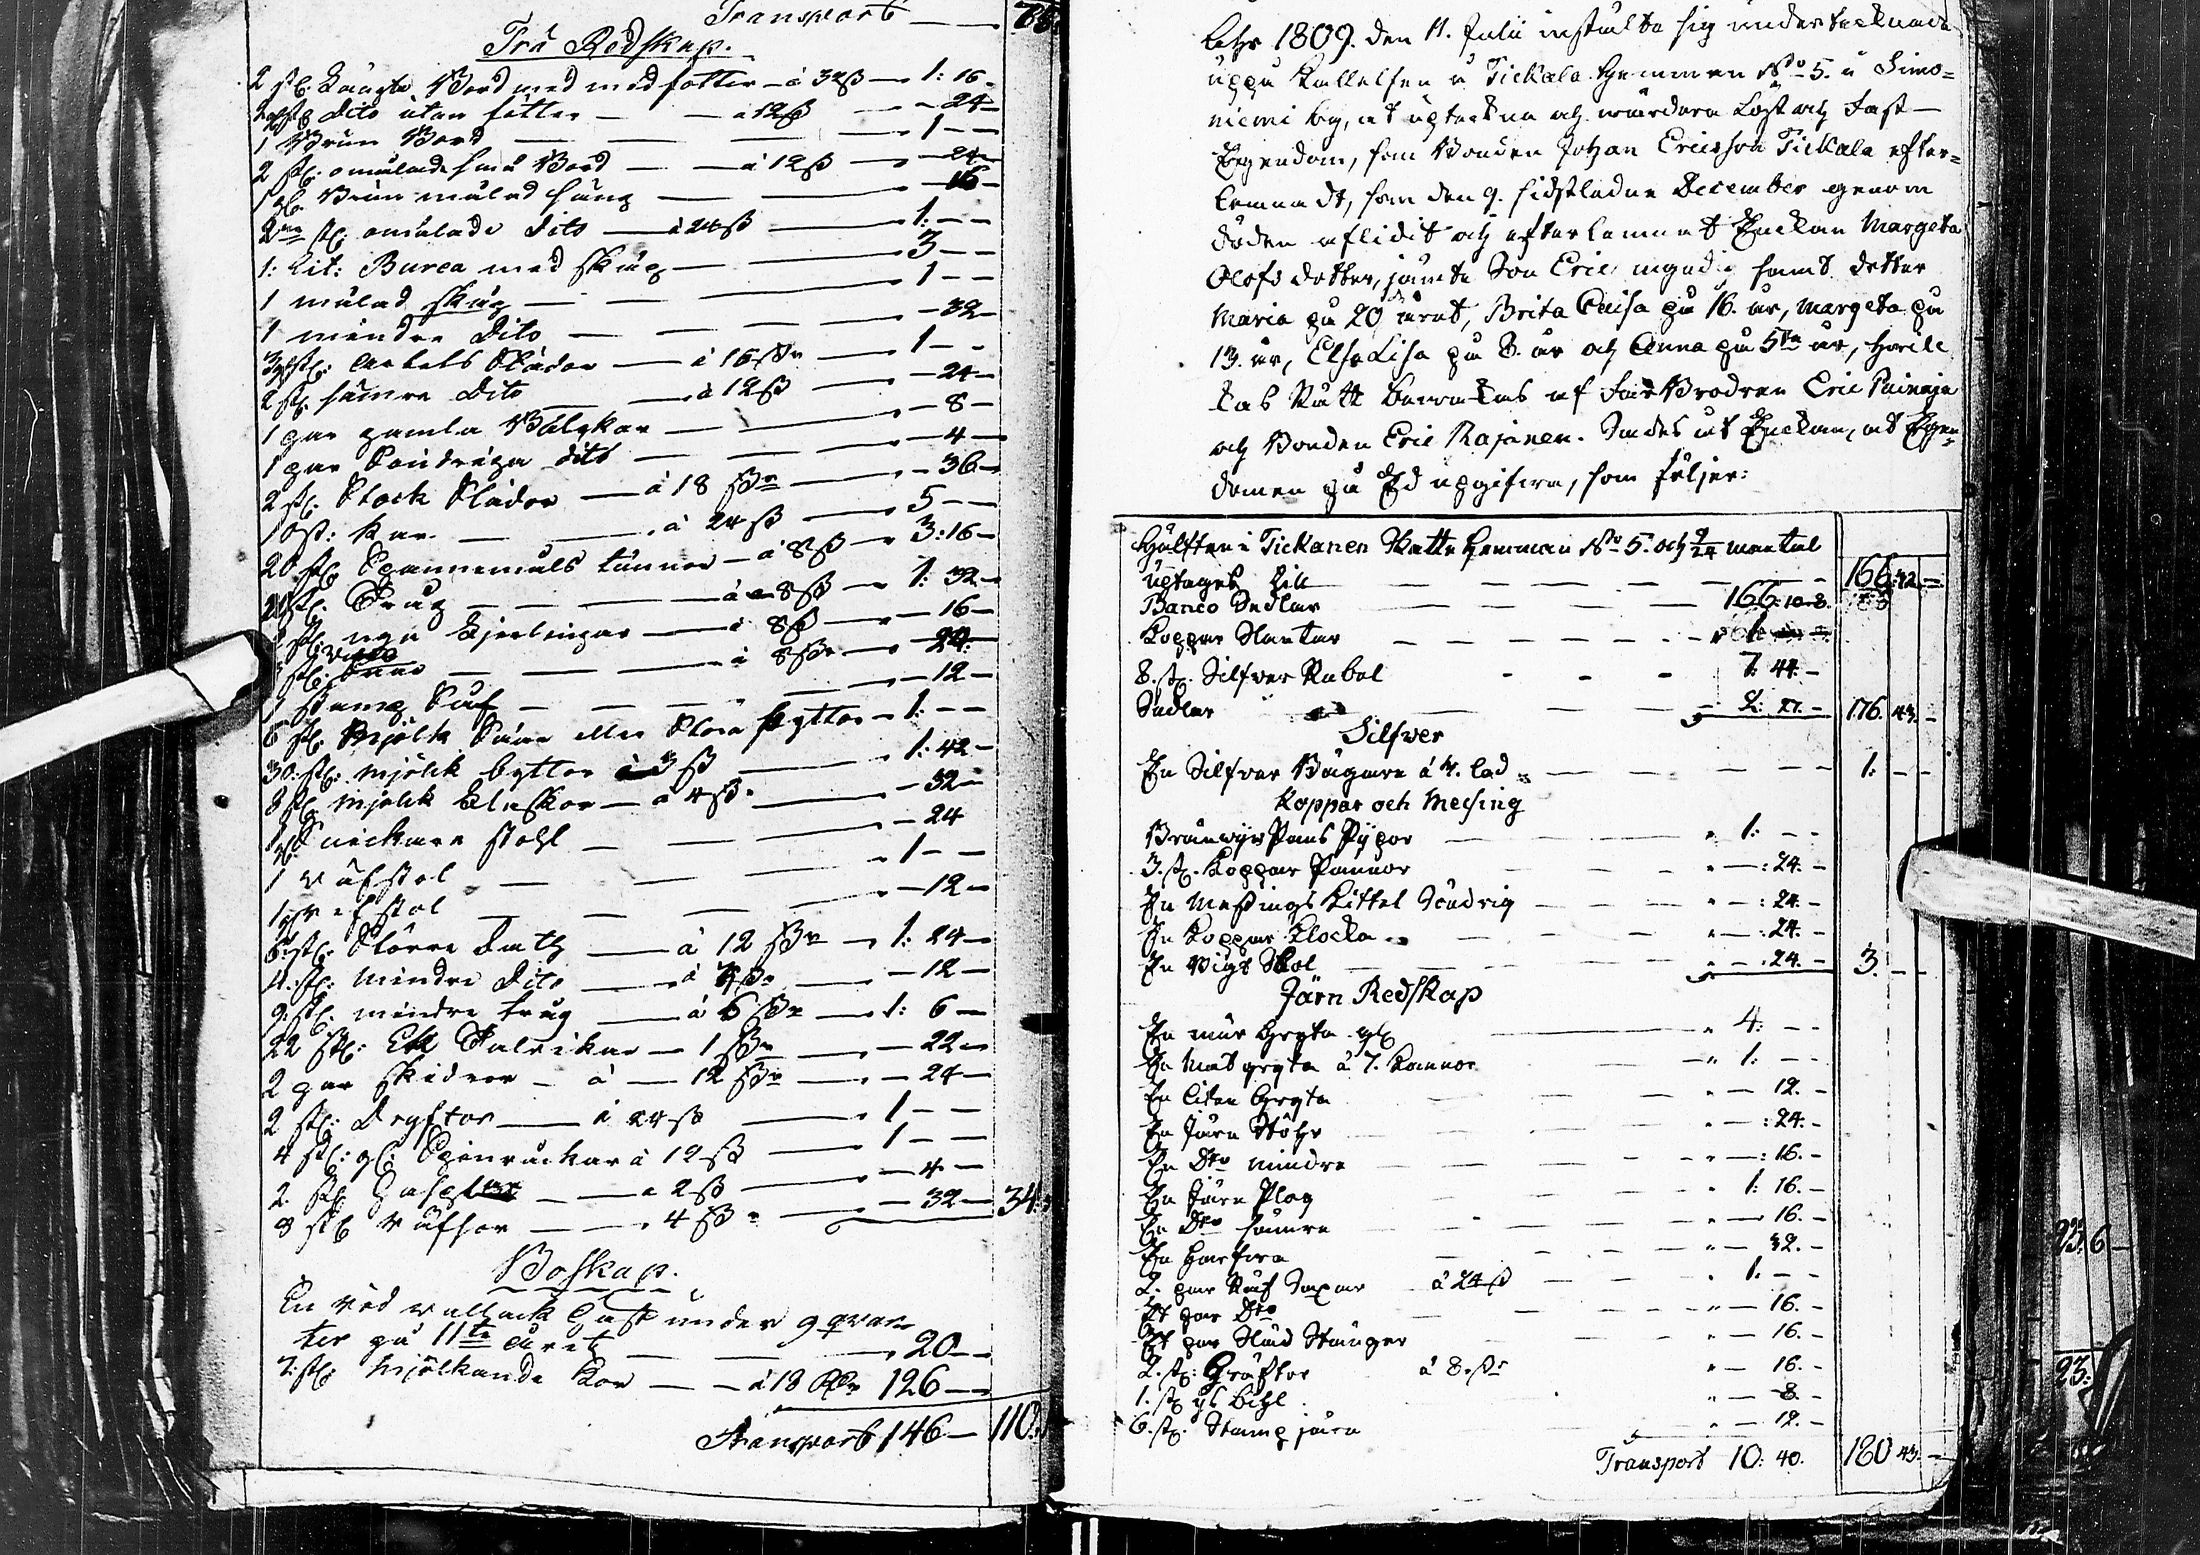 Transport — 76
Trä Redskap.
2 st. Långa Bord med fötter — á 32ß — 1: 16 –
2 st. dito utan fötter — á 12ß — 24 –
1 Brun Bord — 1 – –
2 st. omålade små Bord — á 12ß — 24 –
1 st. Brun målad säng — 16 –
2 st. omålade dito — á 24ß — 1: – –
1: Lit: Burea med skåp — 3 – –
1 målad skåp — 1 – –
1 mindre Dito — 32 –
3 st. arbets Slädor — á 16 ßr — 1 – –
2 st. sämre Dito — á 12ß — 24 –
1 par gamla — 8 –
1 par Söndriga dito — 4 –
2 st. Stock Slädor — á 18 ßr — 36 –
10 st: Kar — á 24ß — 5 – –
20 st. Spannemåls tunnor — á 8ß — 3: 16 –
st. Trug — á 8ß — 1: 32 –
2 st. nya Kjerlingar — á 8ß — 16 –
3 st. — á 8ßr — 24
1 Stamp — 12 –
6 st. Mjölk Såar eller Stora byttor — 1: – –
30: st: mjölk byttor á 3ß — 1: 42 –
8 st. mjölk flaskor — á 4ß — 32 –
1 Snickare stohl — 24
1 väfstol — 1 – –
1 stol — 12 –
6: st: Större — á 12 ßr — 1: 24 –
4: st: Mindre Dito — á ßr — 12 –
9: st: mindre trug — á 6 ßr — 1: 6 –
22 st: Talrikar — 1 ßr — 22 –
2 par skidor — á — 12 ßr — 24 –
2 st: Dryftor — á 24ß — 1 – –
4 st: gl: Spinråckar á 12ß — 1 – –
2 st. — á 2ß — 4 –
8 st. — 4 ßr — 32 — 34:
Boskap.
En röd wallack Häst under 9 qvar
ter på 11te året — 20 – –
7: st: Mjölkande Kor — á 18 Rdr 126 – –
Transport 146 – 110:
Åhr 1809. den 11. Julii instälte sig undertecknade
uppå Kallelsen å Tickala Hemman No 5. i Simo=
niemi by, at upteckna och wärdera Löst och Fast
Egendom, som Bonden Johan Ericsson Tickala efter=
lemnadt, som den 9. sidstledne December genom
döden aflidit och efterlemnat Enckan Margeta
Olofs dotter, jämte Son Eric myndig, samt dotter
Maria på 20de året, Brita Caisa på 16. år, Margeta på
13. år, Elsa Lisa på 8. år och Anna på 5te år, hwil
kas Rätt bewakas af Far Brodren Eric Painaja
och Bonden Eric Rajanen. Sades åt Enckan, at Egen=
domen på Ed upgifwa, som följer:
Hälften i Tickanen Skatte Hemman No 5. och 9/24 mantal
uptaget till — 166: 32. –
Banco Sedlar — 166: 10. 8.
Koppar Slantar
8. st. Silfver Rubel — 7: 44. –
Sedlar — 176. 43. –
Silfwer
En Silfver Bägare á 4. lod — 1: – –
Koppar och Messing
Bränwijns Pans Pypor — 1: – –
3. st. Koppar Pannor — : 24. –
En Messings Kittel Söndrig — : 24. –
En Koppar Klocka — : 24. –
En Wigt Skol — : 24. – 3. – –
Järn Redskap
En mur Gryta gl. — 4: – –
En Mat gryta á 7. Kannor — 1: – –
En liten Gryta — 12. –
En Järn Stöhr — : 24. –
En Dto mindre — : 16. –
En Järn Plog — 1: 16. –
En Dto sämre — 16. –
En Harfwa — 32. –
2. par Räf Saxar á 24ß — 1: – –
Et par Dto — 16. –
Et par Släd Stänger — 16. –
2. st: Gräftor á 8. ßr — 16. –
1. st. ys Bihl — 8. –
6. st. Stamp järn — 12. –
Transport 10: 40. 180 43. –
23: 6 –
23: